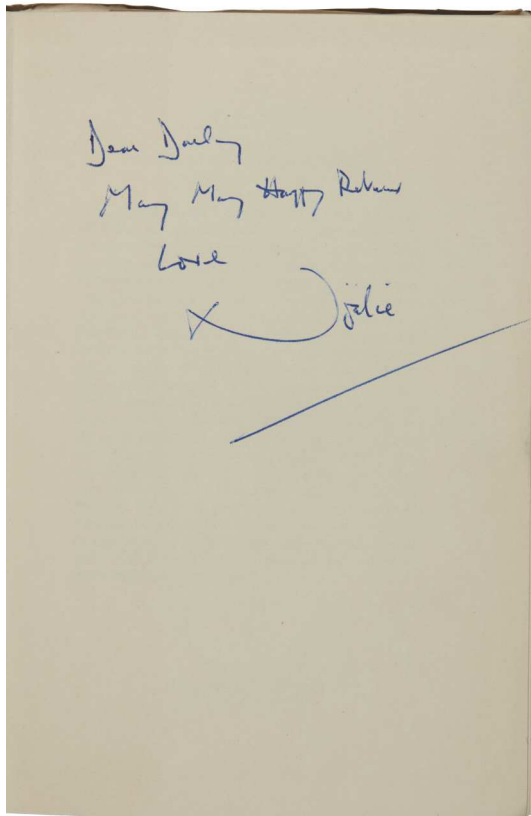 Dear Darling
Many Many Happy Returns
Love